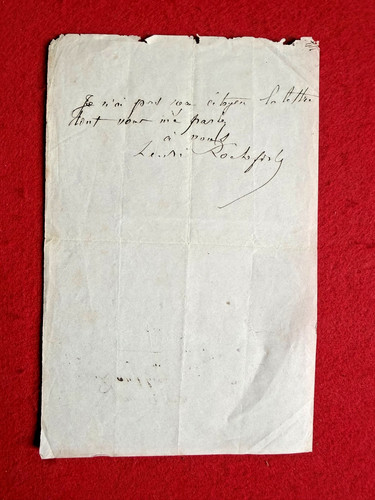 Je n'ai pas vu citoyen la lettre
dont vous me parlez
à vous
Henri Rochefort